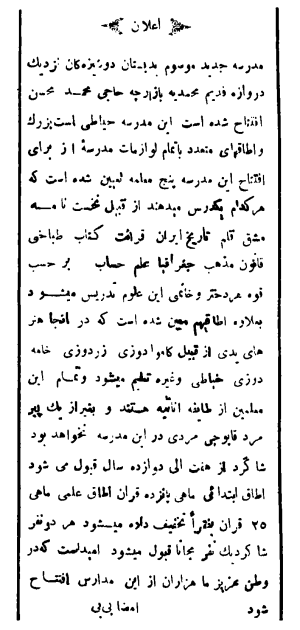 اعلان
مدرسه جدید موسوم بدبستان دوشیزه‌کان نزدیک
دروازه قدیم محمدیه بازارچه حاجی محمد محسن
افتتاح شده است این مدرسه حیاطی است بزرک
و اطاقهای متعدد باتمام لوازمات مدرسهٔ از برای
افتتاح این مدرسه پنج معلمه تعیین شده است که
هرکدام یکدرس میدهند از قبیل نخست نامــه
مشق قلم تاریخ ایران قرائت کتاب طباخی
قانون مذهب جغرافیا علم حساب برحسب
قوه هر دختر و خانمی این علوم تدریس میشود
بعلاوه اطاقهم معین شده است که در آنجا هنر
های یدی از قبیل کاموا دوزی زردوزی خامه
دوزی خیاطی وغیره تعلیم میشود وتمام این
معلمین از طایفه اناثیه هستند و بغیر از یک پیر
مرد قاپوچی مردی در این مدرسه نخواهد بود
شاکرد از هفت الی دوازده سال قبول می شود
اطاق ابتدائی ماهی پانزده قران اطاق علمی ماهی
۲۵ قران بفقرأ تخفیف داده میشود هر دو نفر
شاکرد یک نفر مجانا قبول میشود امید است که در
وطن عزیز ما هزاران از این مدارس افتتــاح
شود امضا بی‌بی